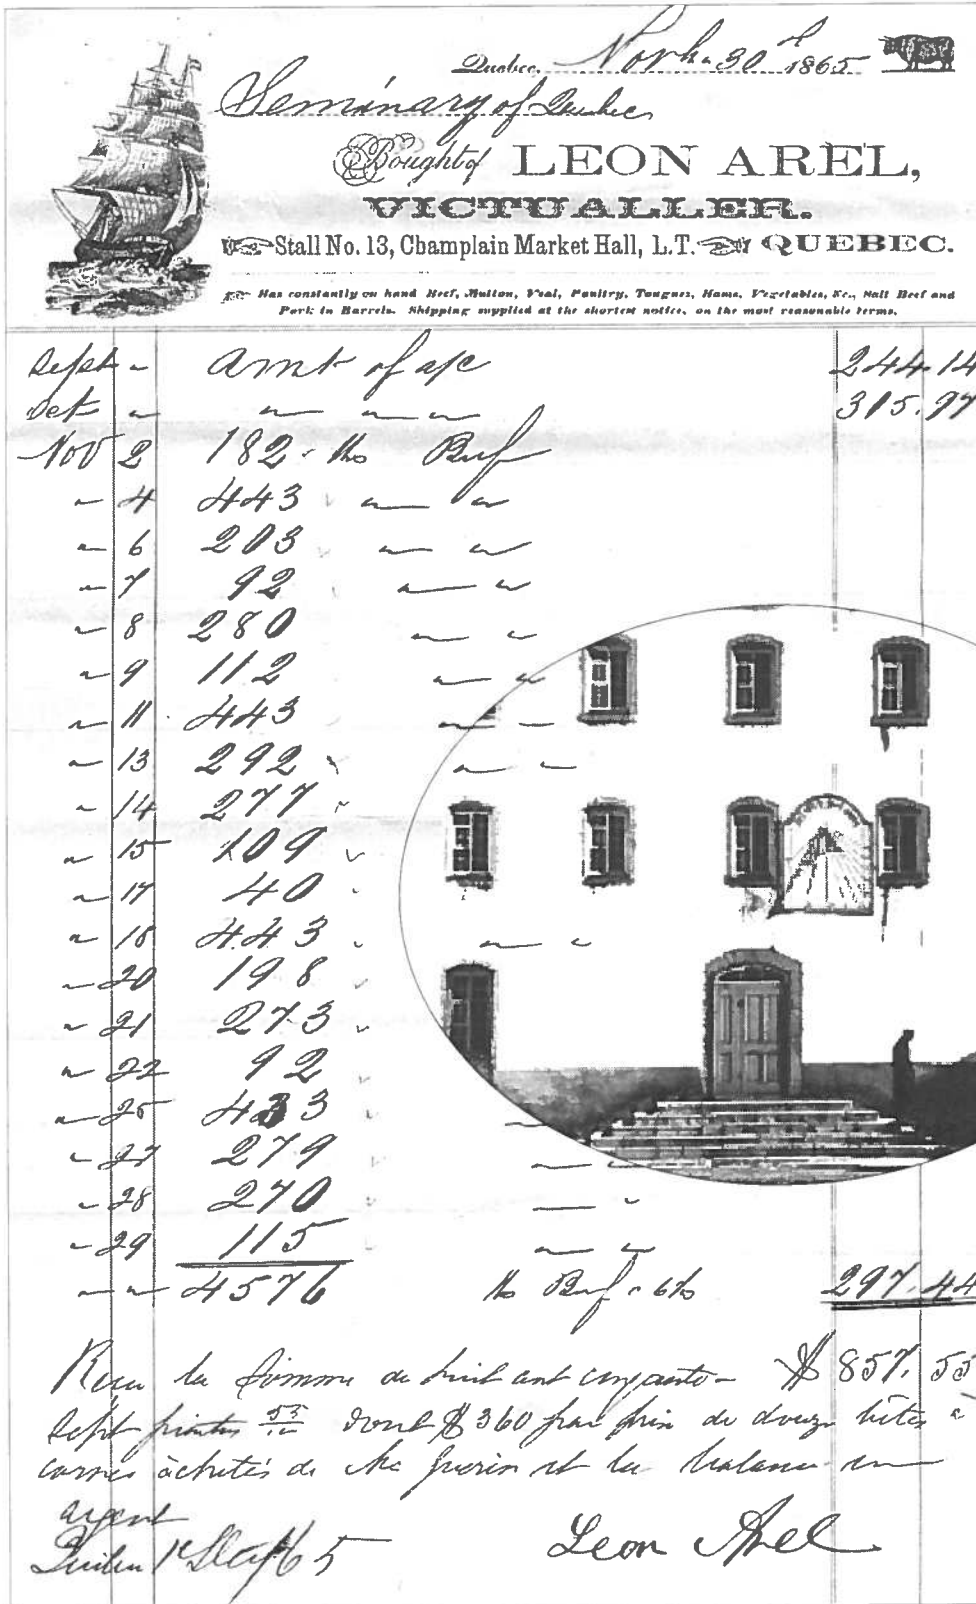 Quebec, Novbr 30d 1865
Seminary of Quebec
Bought of LEON AREL,
VICTUALLER.
Stall No. 13, Champlain Market Hall, L.T. QUEBEC.
Has constantly on hand Beef, Mutton, Veal, Poultry, Tongues, Hams, Vegetables, &c., Salt Beef and
Pork in Barrels. Shipping supplied at the shortest notice, on the most reasonable terms.
Sept " Amt of a/c 244.14
Oct " " " " 315.97
Nov 2 182 " lbs Beef
" 4 443 " "
" 6 203 " "
" 7 92 " "
" 8 280 " "
" 9 112 " "
" 11 443 " "
" 13 292 " "
" 14 277
" 15 109
" 17 40
" 18 443 " "
" 20 198
" 21 273
" 22 92
" 25 433 "
" 27 279 " "
" 28 270 " "
" 29 115 " "
" " 4576 lbs Beef " 6½ 297.44
Reçu la somme de huit cent cinquante- $857.55
sept piastres 55 dont $360 par prix de douze bêtes à
cornes achetés de Mr et la balance en
argent
Québec 1r 65 Leon Arel